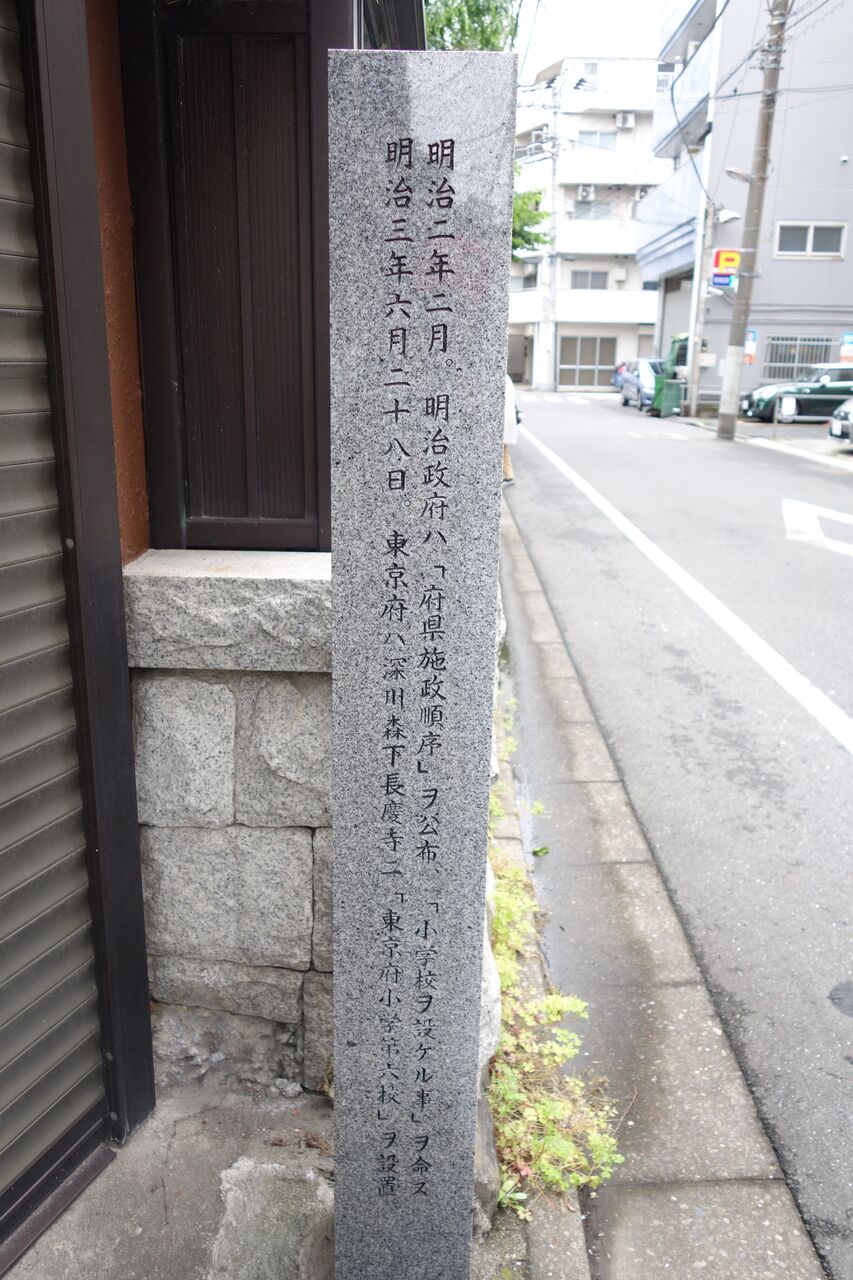 明治二年二月。明治政府ハ「府県施政順序」ヲ公布、「小学校ヲ設ケル事」ヲ命ス
明治三年六月二十八日。東京府ハ深川森下長慶寺ニ「東京府小学第六校」ヲ設置。
P